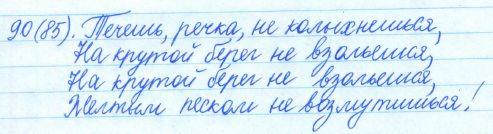 90(85). Течешь, речка, не колыхнешься,
На крутой берег не взольешься,
На крутой берег не взольешься,
Желтым песком не возмутишься!